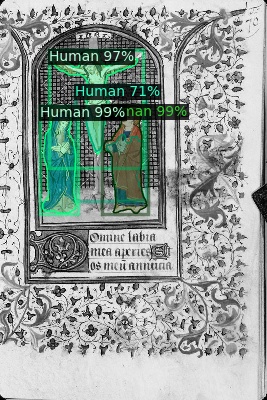 Human 97%
Human 71%
Human 99%
nan 99%
Domine labia
mea aperies Et
os meū annuncia